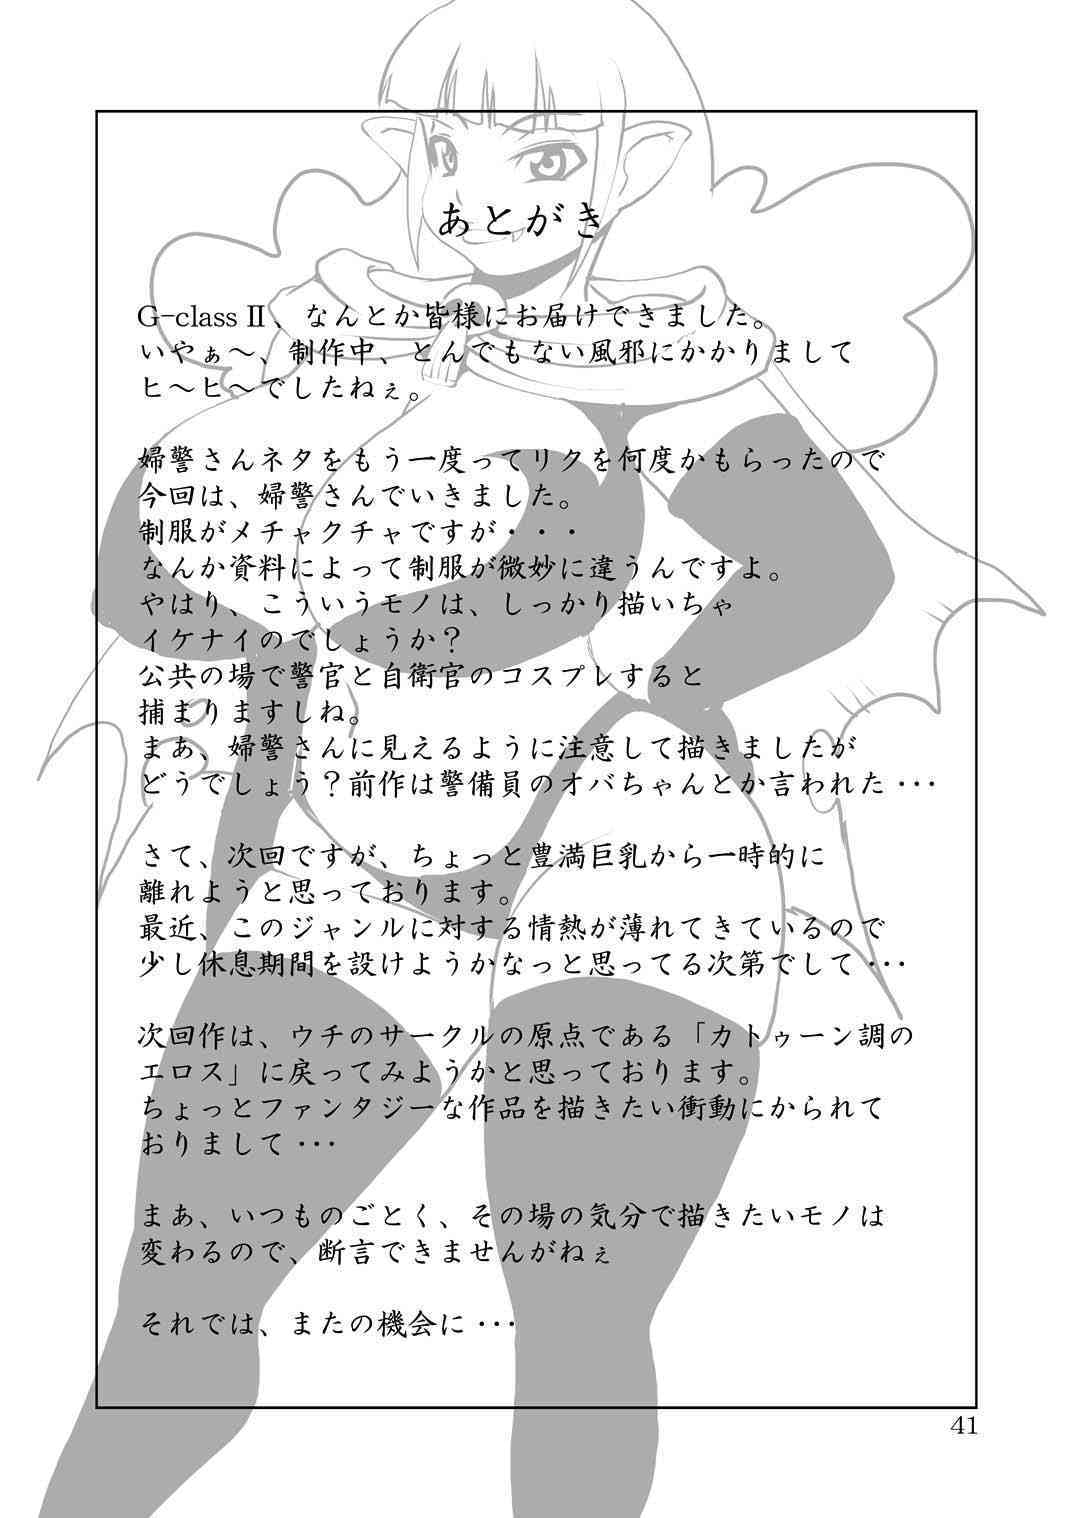 あとがき
G-classⅡ、なんとか皆様にお届けできました。
いやぁ～、制作中、とんでもない風邪にかかりまして
ヒ～ヒ～でしたねぇ。
婦警さんネタをもう一度ってリクを何度かもらったので
今回は、婦警さんでいきました。
制服がメチャクチャですが・・・
なんか資料によって制服が微妙に違うんですよ。
やはり、こういうモノは、しっかり描いちゃ
イケナイのでしょうか？
公共の場で警官と自衛官のコスプレすると
捕まりますしね。
まあ、婦警さんに見えるように注意して描きましたが
どうでしょう？前作は警備員のオバちゃんとか言われた・・・
さて、次回ですが、ちょっと豊満巨乳から一時的に
離れようと思っております。
最近、このジャンルに対する情熱が薄れてきているので
少し休息期間を設けようかなっと思ってる次第でして・・・
次回作は、ウチのサークルの原点である「カトゥーン調の
エロス」に戻ってみようかと思っております。
ちょっとファンタジーな作品を描きたい衝動にかられて
おりまして・・・
まあ、いつものごとく、その場の気分で描きたいモノは
変わるので、断言できませんがねぇ
それでは、またの機会に・・・
41